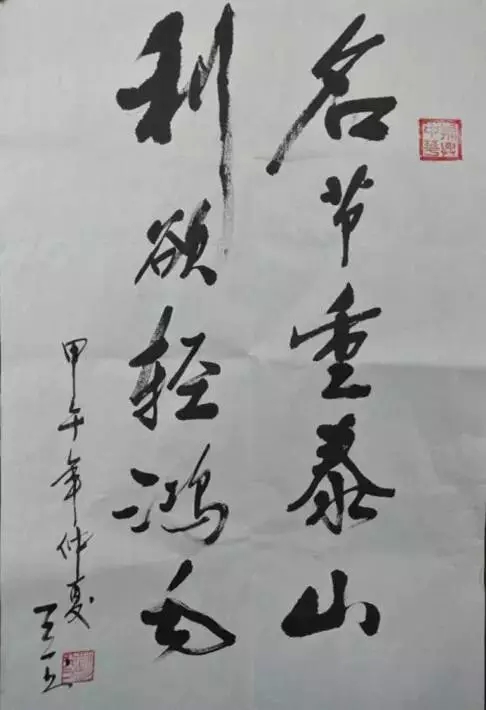 名节重泰山
利欲轻鸿毛
甲午年仲夏